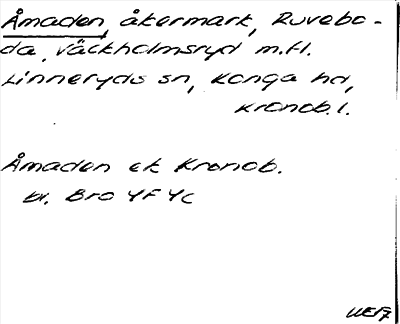 Åmaden, åkermark, Ruvebo-
da, Väckholmsryd m.fl.
Linneryds sn, Konga hd,
Kronob. l.
Åmaden ek Kronob.
br. Bro YF YC